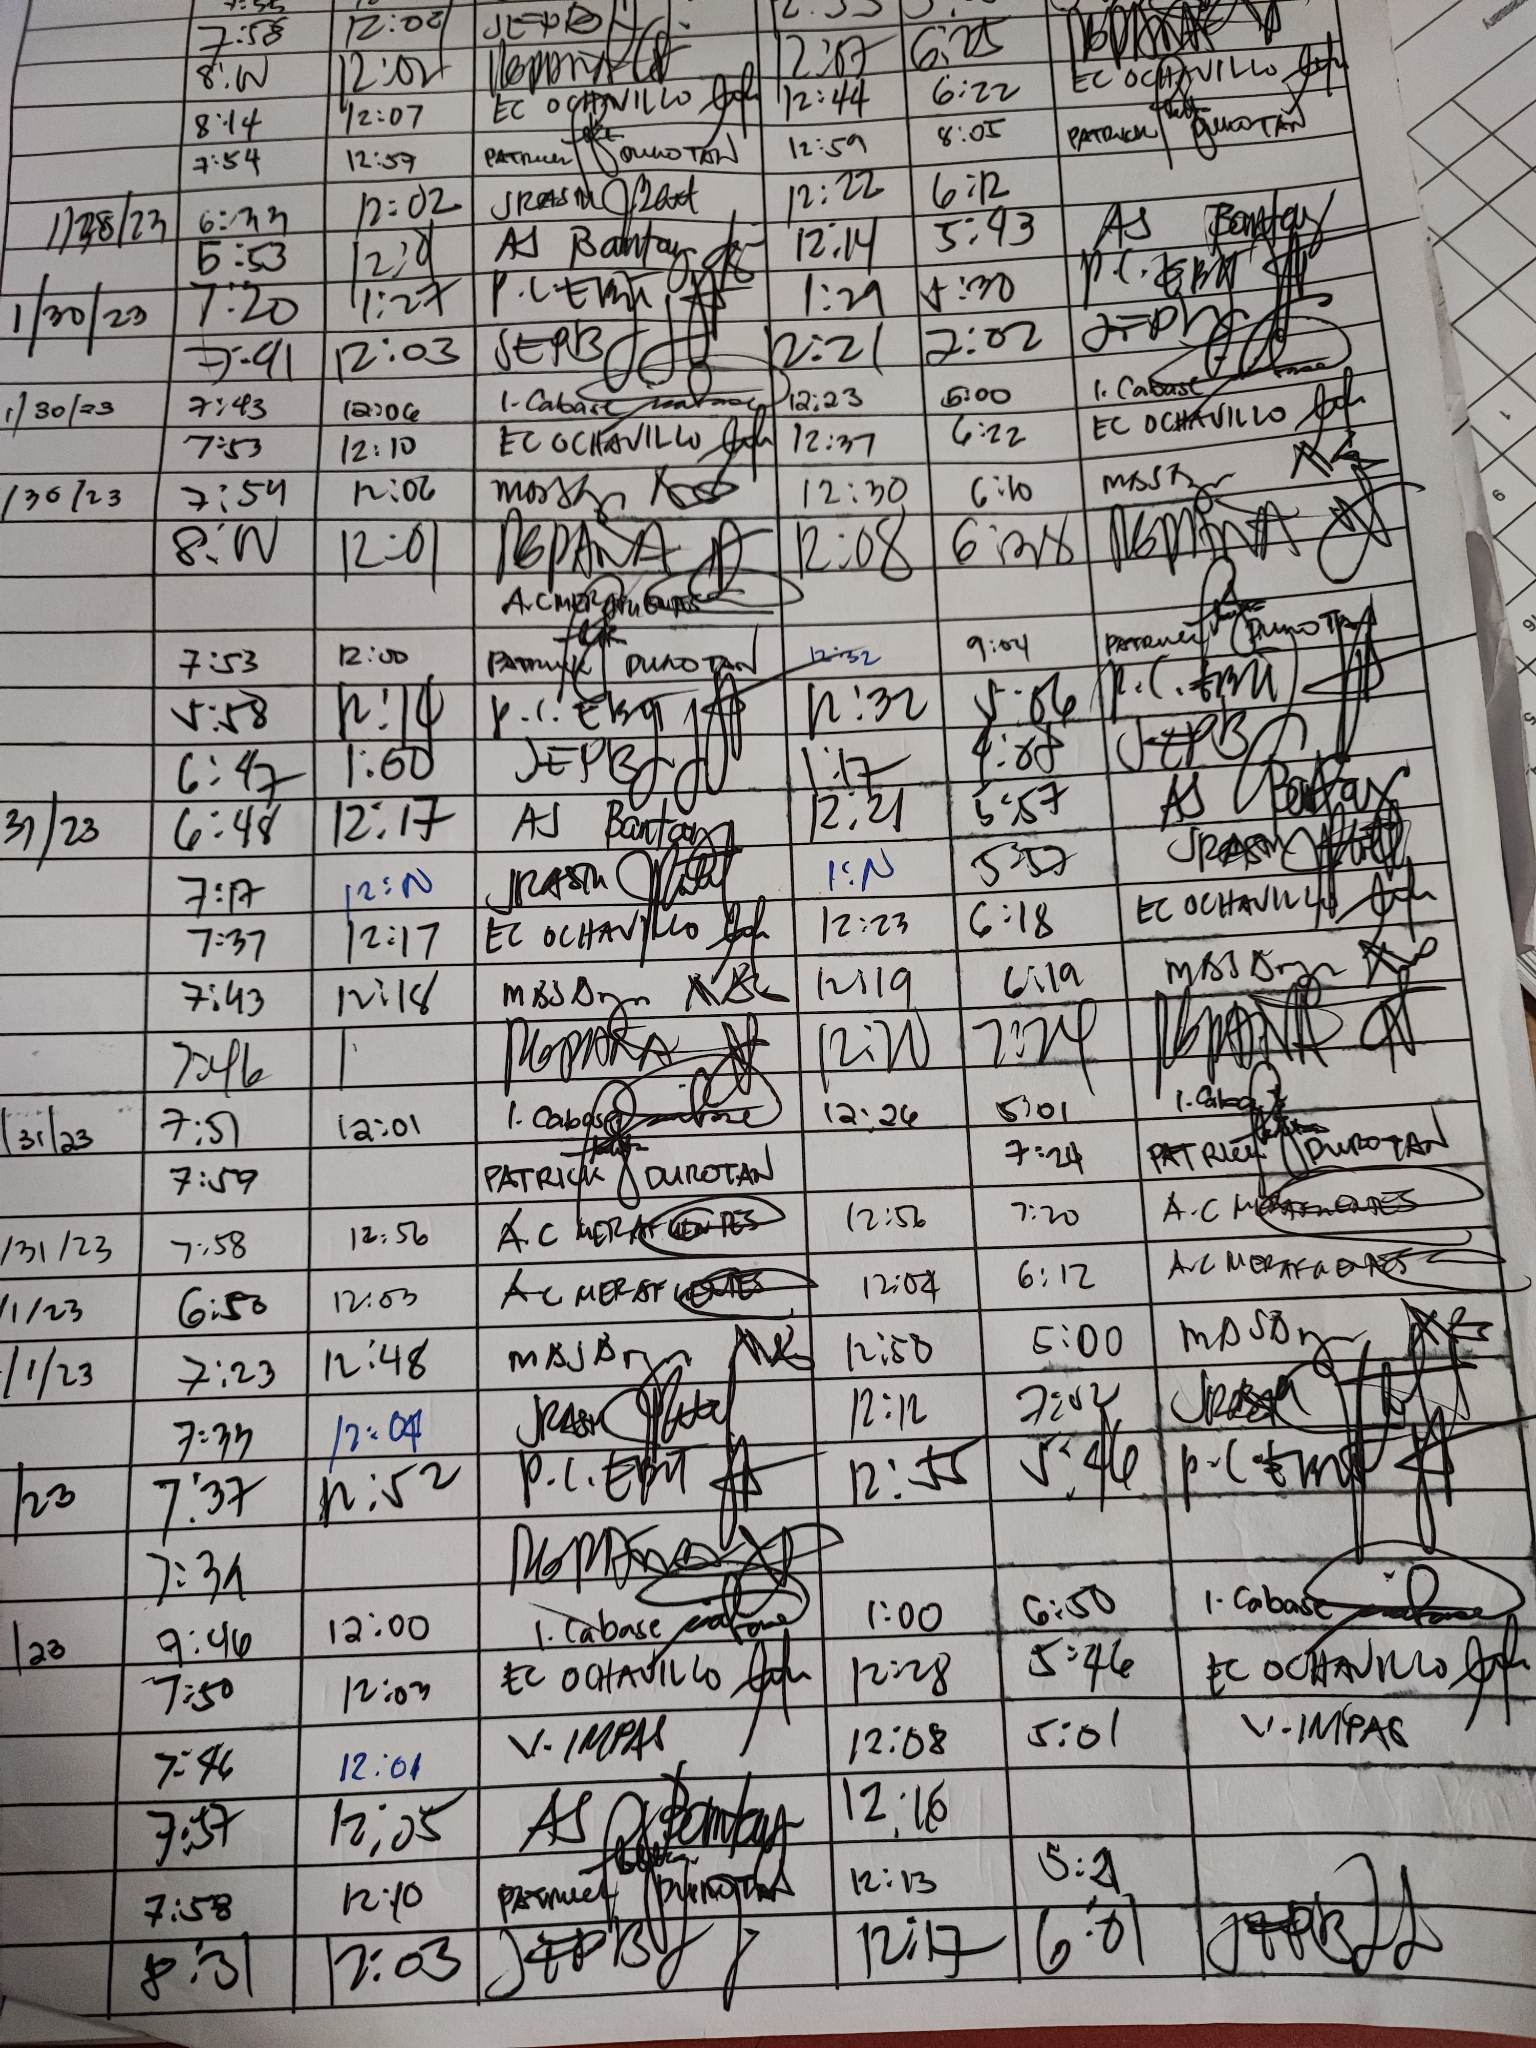 7:58 12:02 JEPB
8:N 12:02 12:07 6:25
8:14 12:07 EC OCHAVILLO 12:44 6:22 EC OCHAVILLO
7:54 12:57 PATRICK DUROTAN 12:59 8:05 PATRICK DUROTAN
1/28/23 6:33 12:02 JRASM 12:22 6:12
5:53 AS Bantay 12:14 5:43 AS Bantay
1/30/23 7:20 1:27 P.C. EBIT 1:29 5:30 P.C. EBIT
7:41 12:03 JEPB 12:21 7:02 JEPB
1/30/23 7:43 12:06 I. Cabase 12:23 5:00 I. Cabase
7:53 12:10 EC OCHAVILLO 12:37 6:22 EC OCHAVILLO
/30/23 7:54 12:06 12:30 6:10
8:N 12:01 NGPANA 12:08 NGPANA
A.C MERAFUENTES
7:53 12:00 PATRICK DUROTAN 12:32 9:04 PATRICK DUROTAN
5:58 12:14 P.C. EBIT 12:32 5:06 P.C. EBIT
6:47 1:00 JEPB 1:17 JEPB
31/23 6:48 12:17 AS Bantay 12:21 5:57 AS Bantay
7:17 12:N JRASM 1:N 5:57 JRASM
7:37 12:17 EC OCHAVILLO 12:23 6:18 EC OCHAVILLO
7:43 12:18 12:19 6:19
7:46 NGPANA 12:20 7:24 NGPANA
/31/23 7:51 12:01 I. Cabase 12:26 5:01 I. Cabase
7:59 PATRICK DUROTAN 7:24 PATRICK DUROTAN
/31/23 7:58 12:56 A.C MERAFUENTES 12:56 7:20 A.C MERAFUENTES
/1/23 6:50 12:03 A.C MERAFUENTES 12:04 6:12 A.C MERAFUENTES
/1/23 7:23 12:48 12:50 5:00
7:33 12:04 JRASM 12:12 7:02 JRASM
/23 7:37 12:52 P.C. EBIT 12:55 5:46 P.C. EBIT
7:34 NGPANA
/23 9:46 12:00 I. Cabase 1:00 6:50 I. Cabase
7:50 12:03 EC OCHAVILLO 12:28 5:46 EC OCHAVILLO
7:46 12:01 V. IMPAS 12:08 5:01 V. IMPAS
7:57 12:05 AS Bantay 12:16
7:58 12:10 PATRICK DUROTAN 12:13 5:21
8:31 12:03 JEPB 12:17 6:01 JEPB